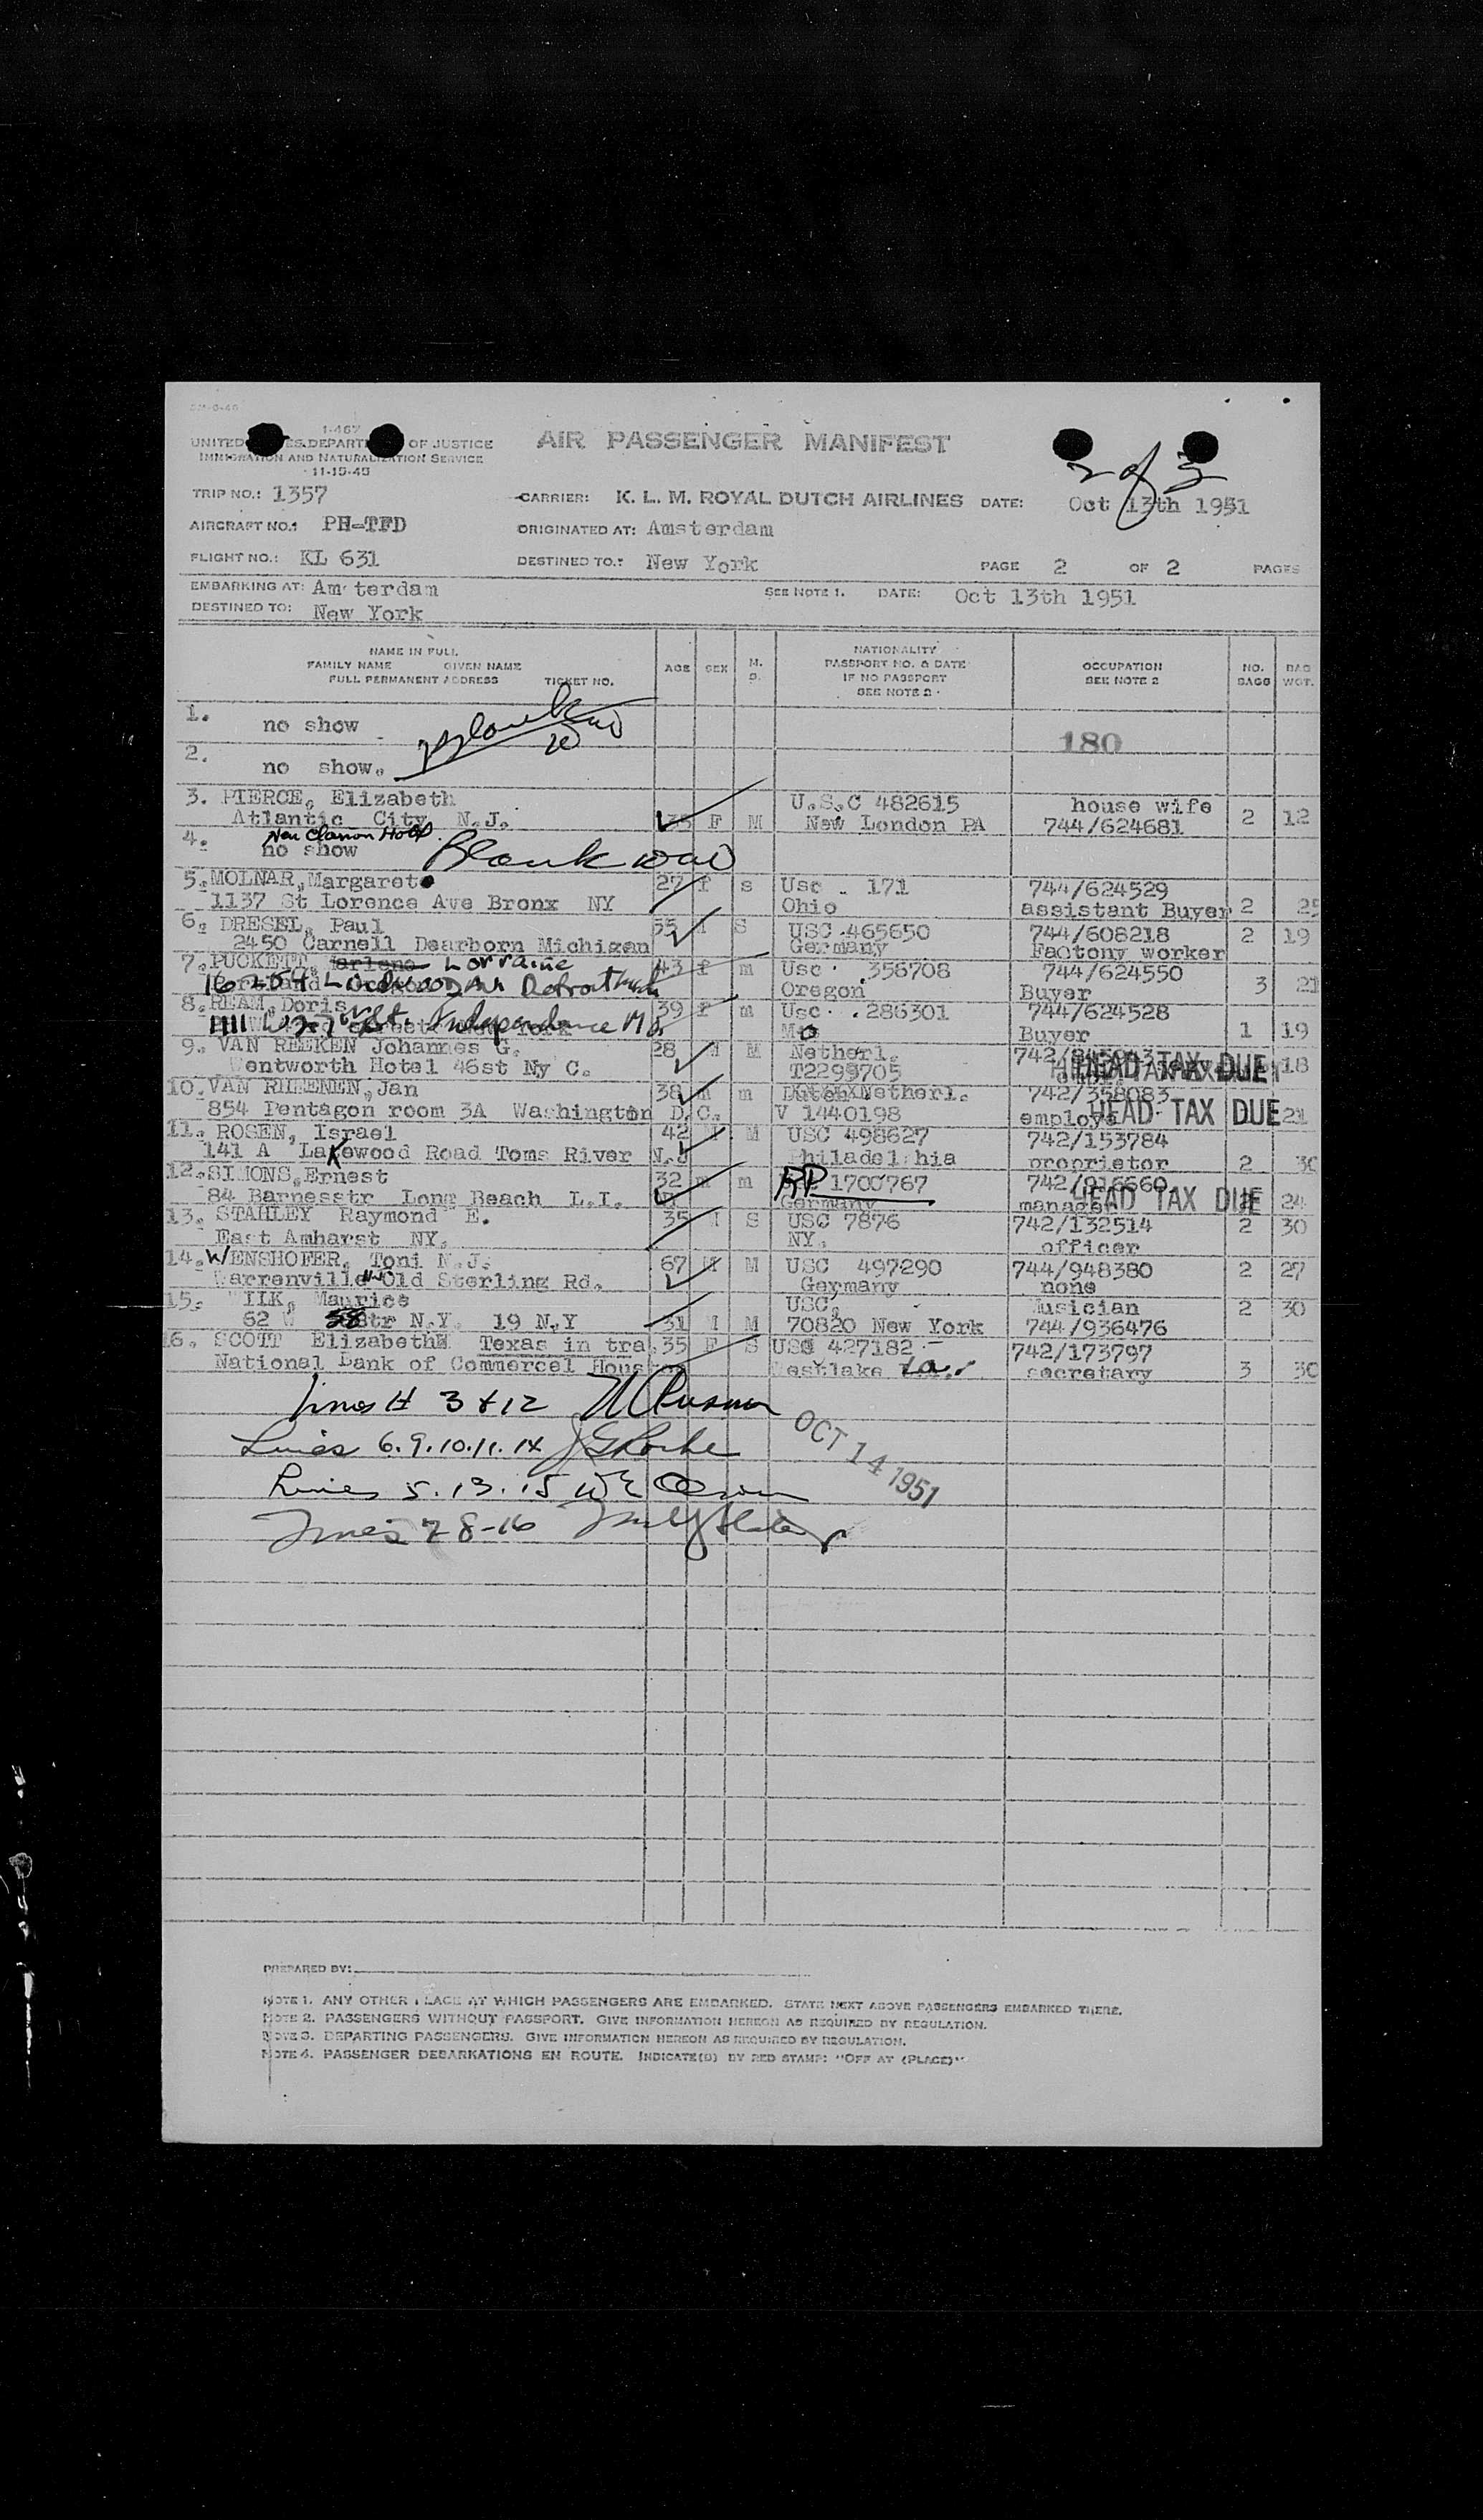 1-467
UNITED STATES DEPARTMENT OF JUSTICE
IMMIGRATION AND NATURALIZATION SERVICE
11-15-45
AIR PASSENGER MANIFEST
2 of
TRIP NO.: 1357 CARRIER: K. L. M. ROYAL DUTCH AIRLINES DATE: Oct 13th 1951
AIRCRAFT NO.: PH-TFD ORIGINATED AT: Amsterdam
FLIGHT NO.: KL 631 DESTINED TO.: New York PAGE 2 OF 2 PAGES
EMBARKING AT: Am terdam SEE NOTE 1. DATE: Oct 13th 1951
DESTINED TO: New York
NAME IN FULL
FAMILY NAME GIVEN NAME
FULL PERMANENT ADDRESS TICKET NO.
AGE SEX M. S.
NATIONALITY
PASSPORT NO. & DATE
IF NO PASSPORT
SEE NOTE 2
OCCUPATION
SEE NOTE 2
NO. BAGS
BAG WGT.
1. no show Blank
180
2. no show.
3. PIERCE, Elizabeth U.S.C 482615 house wife
Atlantic City N.J. 35 F M New London PA 744/624681 2 12
4. no show Blank
5. MOLNAR, Margaret 27 f s Usc 171 744/624529
1137 St Lorence Ave Bronx NY Ohio assistant Buyer 2 25
6. DRESEL, Paul 55 S USC 465650 744/608218 2 19
2450 Carnell Dearborn Michigan Germany Factony worker
7. PUCKETT, Lorraine 43 f m Usc 358708 744/624550
Detroit Oregon Buyer 3 21
8. REAM, Doris 39 f m Usc 286301 744/624528
Independence Mo Buyer 1 19
9. VAN REEKEN Johannes G. 28 M M Netherl.
Wentworth Hotel 46st Ny C. T2299705 HEAD TAX DUE 18
10. VAN RHEENEN, Jan 38 m m Netherl. 742/358083
854 Pentagon room 3A Washington D.C. V 1440198 employe HEAD TAX DUE 21
11. ROSEN, Israel 42 M M USC 498627 742/153784
141 A Lakewood Road Toms River N.J Philadel hia proprietor 2 30
12. SIMONS, Ernest 32 m m RP 1700767 742/916660
84 Barnesstr Long Beach L.I. Germany manager HEAD TAX DUE 24
13. STAHLEY Raymond E. 35 M S USC 7876 742/132514 2 30
East Amharst NY. NY. officer
14. WENSHOFER, Toni N.J. 67 M M USC 497290 744/948380 2 27
Warrenville Old Sterling Rd. Germany none
15. WILK, Maurice USC, Musician 2 30
62 W 58 str N.Y. 19 N.Y 31 M M 70820 New York 744/936476
16. SCOTT Elizabeth Texas in tra. 35 F S USC 427182 742/173797
National Bank of Commercel Hous estlake La. secretary 3 30
Lines # 3 & 12
Lines 6. 9. 10. 11. 14
Lines 5. 13. 15
Lines 7 8-16
OCT 14 1951
PREPARED BY:
NOTE 1. ANY OTHER PLACE AT WHICH PASSENGERS ARE EMBARKED. STATE NEXT ABOVE PASSENGERS EMBARKED THERE.
NOTE 2. PASSENGERS WITHOUT PASSPORT. GIVE INFORMATION HEREON AS REQUIRED BY REGULATION.
NOTE 3. DEPARTING PASSENGERS. GIVE INFORMATION HEREON AS REQUIRED BY REGULATION.
NOTE 4. PASSENGER DEBARKATIONS EN ROUTE. INDICATE(D) BY RED STAMP: "OFF AT (PLACE)"